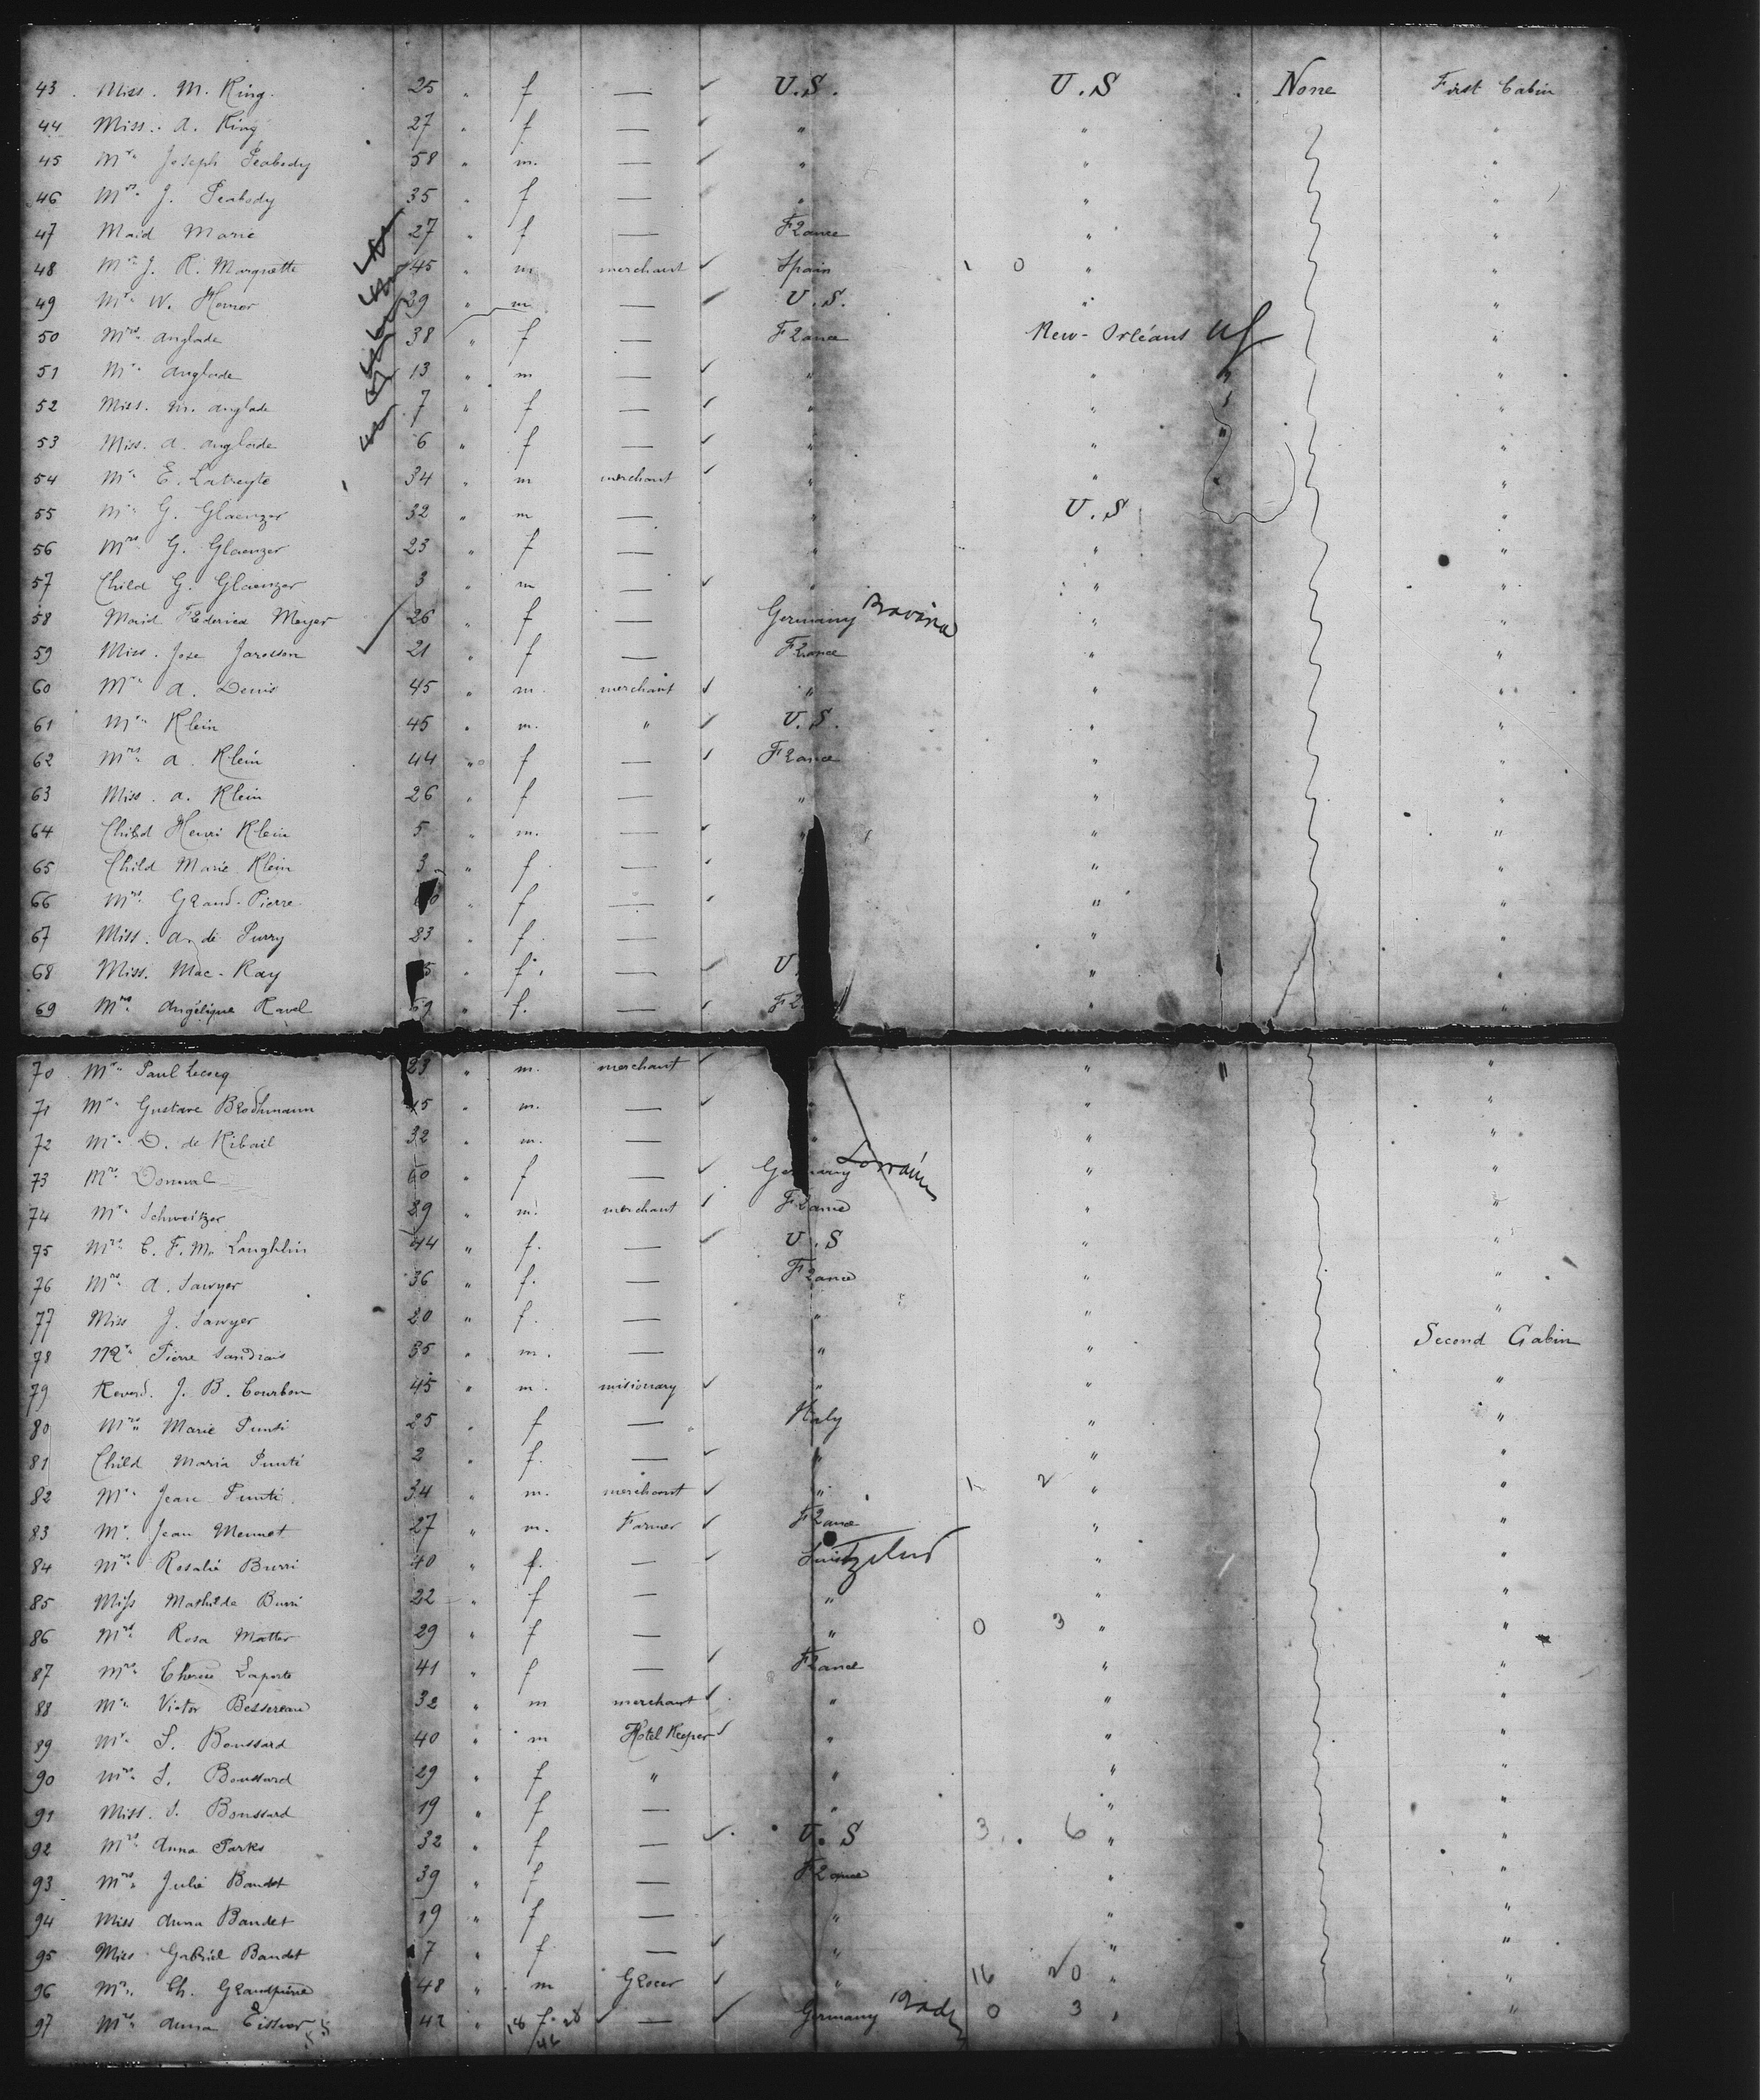 43 Miss. M. King. 25 " f — ✓ U.S. U.S None First Cabin
44 Miss. A. King 27 " f — ✓ " " "
45 Mr. Joseph Peabody 58 " m. — ✓ " " "
46 Mrs. J. Peabody 35 " f — " " "
47 Maid Marie 27 " f — France " "
48 Mr. J. R. Marquette 45 " m merchant ✓ Spain 1 0 " "
49 Mr. W. Homor 29 " m — U.S. " "
50 Mrs. Anglade 38 " f — France New-Orléans "
51 Mr. Anglade 13 " m — ✓ " " "
52 Miss. M. Anglade 7 " f — ✓ " " "
53 Miss. A. Anglade 6 " f — ✓ " " "
54 Mr. E. Latreyte 34 " m merchant ✓ " " "
55 Mr. G. Glaenzer 32 " m — " U.S "
56 Mrs. G. Glaenzer 23 " f — " " "
57 Child G. Glaenzer 3 " m — ✓ " " "
58 Maid Frederica Meyer 26 " f — Germany Bavaria " "
59 Miss. Jarosson 21 " f — France " "
60 Mr. A. Denis 45 " m. merchant ✓ " " "
61 Mr. Klein 45 " m. " ✓ U.S. " "
62 Mrs. A. Klein 44 " f — ✓ France " "
63 Miss. A. Klein 26 " f — " " "
64 Child Henri Klein 5 " m. — ✓ " " "
65 Child Marie Klein 3 " f — ✓ " "
66 Mrs. Grand-Pierre " f — ✓ " "
67 Miss. A. de Purry 23 " f. — " "
68 Miss. Mac-Kay " f. — ✓ U " "
69 Mrs. Angélique Ravel 69 " f. — ✓ " "
70 Mr. Paul Lecocq 23 " m. merchant ✓ " "
71 Mr. Gustave Brodhmann 45 " m. — ✓ " " "
72 Mr. D. de Ribail 32 " m. — " " "
73 Mrs. Donnval 60 " f — ✓ Germany Lorraine " "
74 Mr. Schweitzer 29 " m. merchant ✓ France " "
75 Mrs. C. F. Mc Loughlin 44 " f. — ✓ U.S " "
76 Mrs. A. Sawyer 36 " f. — France " "
77 Miss J. Sawyer 20 " f. — " " "
78 Mr. Pierre Sandrais 35 " m. — " " Second Cabin
79 Reverd. J. B. Courbon 45 " m. misionary ✓ " " "
80 Mrs. Marie Punti 25 " f — Italy " "
81 Child Maria Punti 2 " f. — ✓ " " "
82 Mr. Jean Punti 34 " m. merchant ✓ " 1 2 " "
83 Mr. Jean Mennet 27 " m. Farmer ✓ France " "
84 Mrs. Rosalie Burri 40 " f. — ✓ Switzelnd " "
85 Miss Mathilde Burri 22 " f — " " "
86 Mrs. Rosa Matter 29 " f — " 0 3 " "
87 Mrs. Therese Laporte 41 " f — ✓ France " "
88 Mr. Victor Bessereau 32 " m merchant ✓ " " "
89 Mr. S. Boussard 40 " m Hotel Keeper ✓ " " "
90 Mrs. S. Boussard 29 " f " " " "
91 Miss. S. Boussard 19 " f — " " "
92 Mrs. Anna Parks 32 " f — ✓ U.S 3 6 " "
93 Mrs. Julie Baudet 39 " f — France " "
94 Miss Anna Baudet 19 " f — " " "
95 Miss Gabriel Baudet 7 " f — ✓ " " "
96 Mr. Ch. Grandpierre 48 " m Grocer ✓ " 16 20 " "
97 Mrs. Anna Eissner 42 " 18 f. 28 ✓ — ✓ Germany Baden 0 3 " "
46